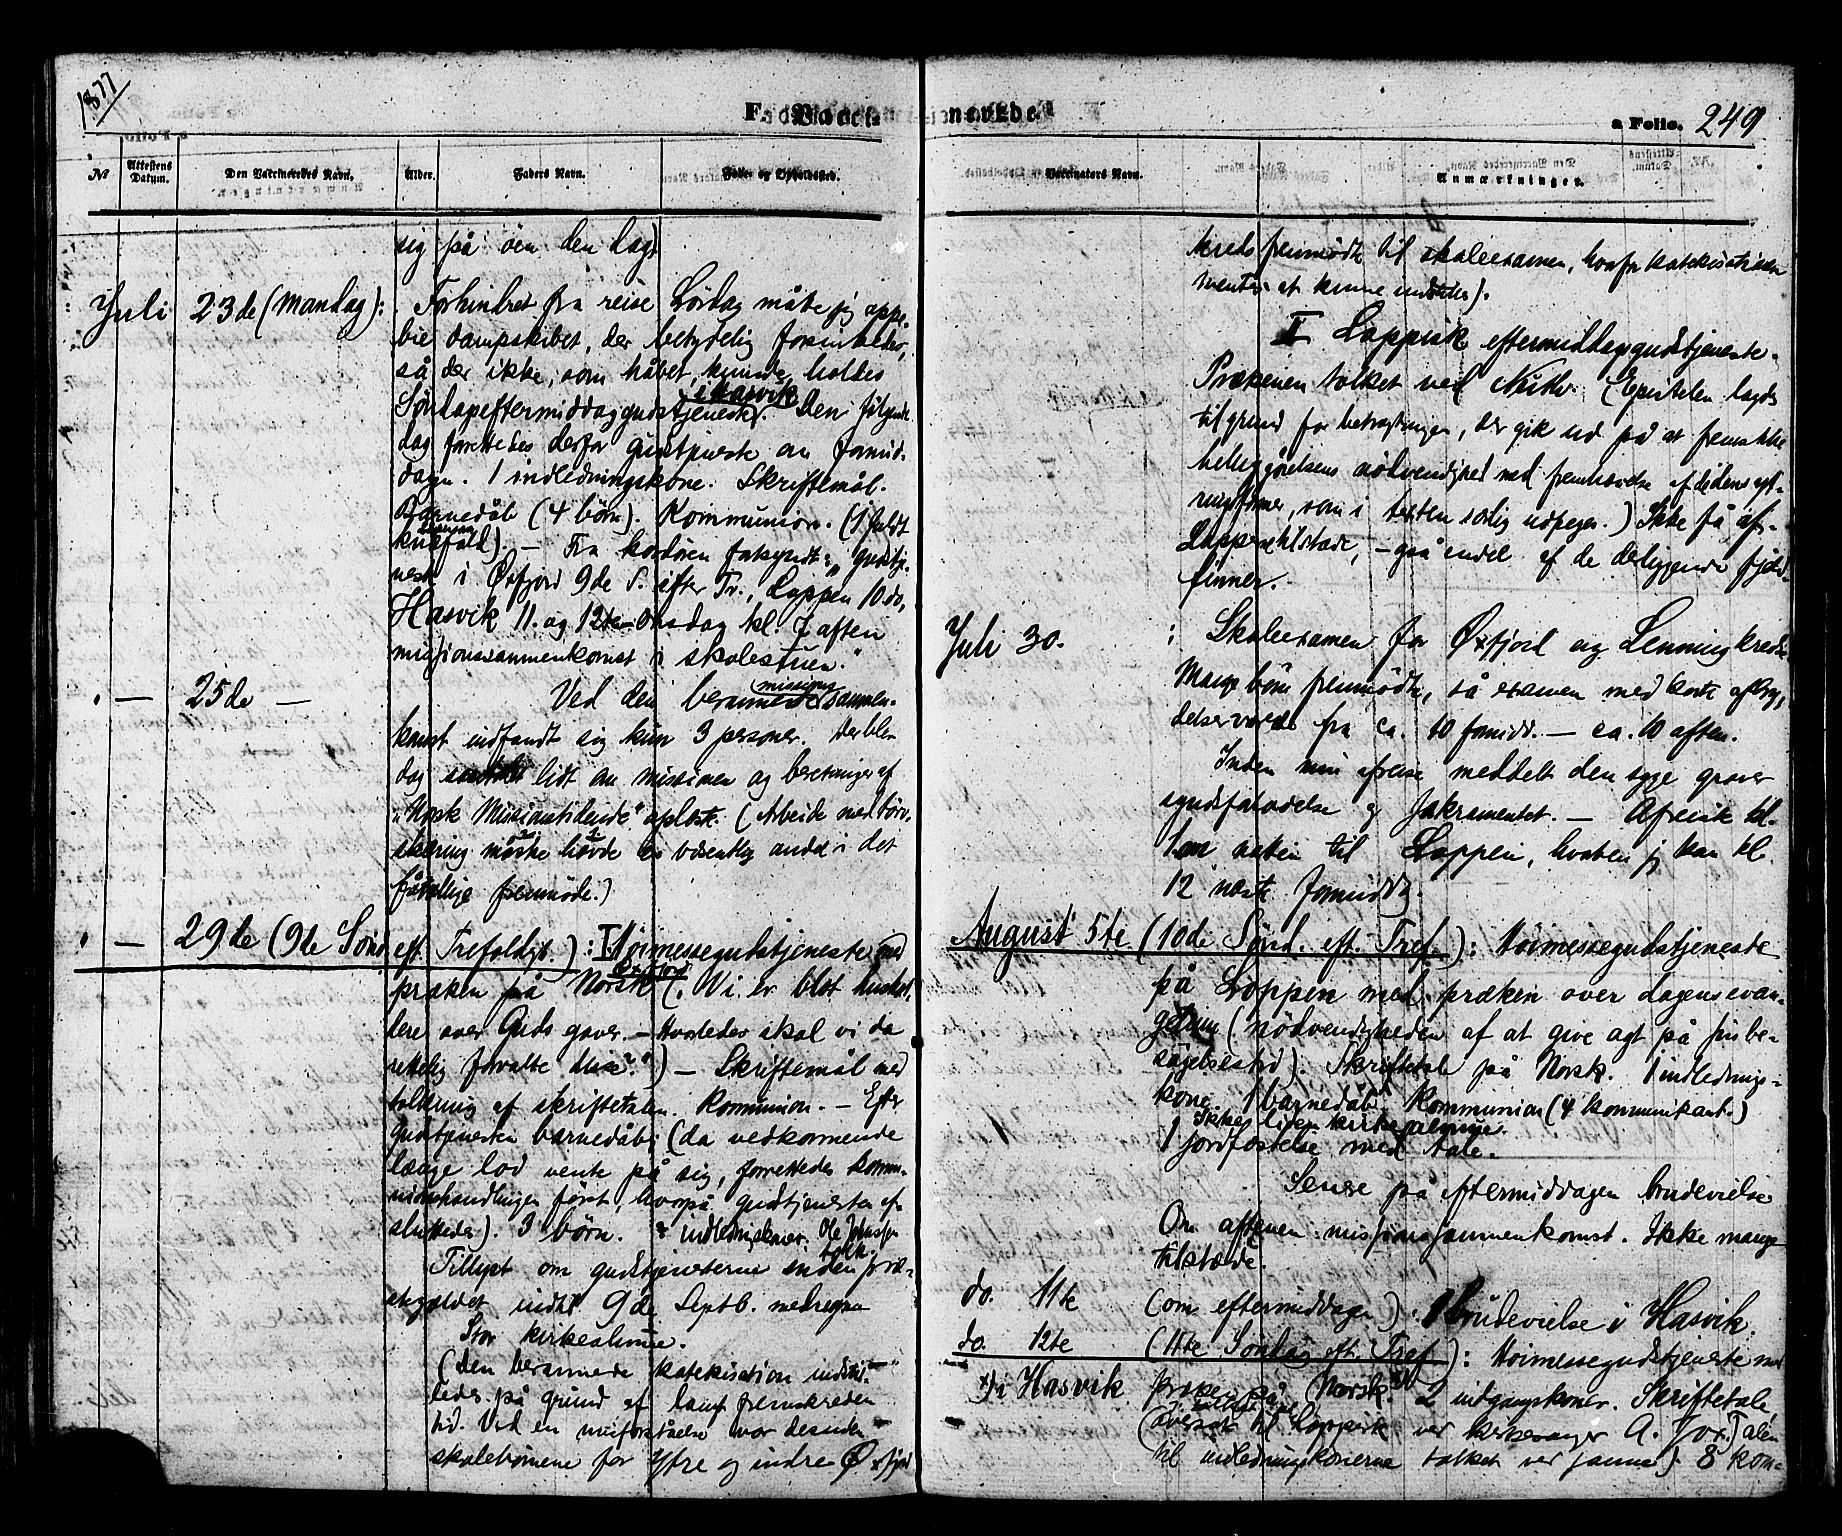 1877
F. Vacci-
nerede.
a Folio. 249
№ Attestens Datum. Den Vaccineredes Navn. Alder. Faders Navn. Føde- og Opholdssted.
Vaccinators Navn. Anmærkninger.
sig på øen den dag)
Juli 23de (Mandag): Forhindret fra reise Lördag måtte jeg oppe-
bie dampskibet, der betydelig forsinkedes,
så der ikke, som håbet, kunde holdes
i Hasvik
Söndagseftermiddaggudstjeneste. Den fölgende
dag forrettedes derfor gudstjeneste om formid-
dagen. 1 indledningskone. Skriftemål.
Barnedåb (4 börn). Kommunion. (1
knefald). — Fra kordören gudstje-
neste i Øxfjord 9de S. efter Tr., Loppen 10de,
Hasvik 11. og 12te. Onsdag kl. 7 aften
missionssammenkomst i skolestuen."
" — 25de — Ved den berammede missions sammen-
komst indfandt sig kun 3 personer. Der blev
dog samtalet lidt om missionen og beretninger af
"Norsk Missionstidende" oplæst. (Arbeide med törv-
skæring måske havde væsentlig andel i det
fåtallige fremmöde.)
" — 29de (9de Sönd. eft. Trefoldigh.): I Höimessegudstjeneste med
Øxfjord
præken på Norsk (. Vi er blot hushol-
dere over Guds gaver. — Hvorledes skal vi da
rettelig forvalte disse?") — Skriftemål med
tolkning af skriftetalen. Kommunion. — Efter
Gudstjenesten barnedåb; (da vedkommende
længe lod vente på sig, forrettedes kommu-
nionshandlingen först, hvorpå gudstjenesten af-
sluttedes). 3 börn. indledningskoner. Ole Johnsen
tolk.
Tillyst om gudstjenesterne inden præ-
stegjeldet indtil 9de Septb. medregnet
Stor kirkealmue.
(den berammede katekisation indstil-
ledes på grund af langt fremskreden
tid. Ved en misforståelse var desuden
skolebörnene for Ytre og indre Øxfjord
kreds fremmödt til skoleexamen, hvorfor katekisationen
mentes at kunne indstilles).
II Lappisk eftermiddagsgudstjeneste.
Prækenen tolket ved (Epistelen lagdes
til grund for betragtningen, der gik ud på at fremstille
helliggjörelsens nödvendighed med fremhævelse af dödens yt-
ringsformer, som i texten særlig udpeges.) Ikke få af
Lapper tilstede, — også endel af de derliggende fjeld-
finner.
Juli 30. : Skoleexamen for Øxfjord og Lenning kredse
Mange börn fremmödte, så examen med korte afbry-
delser varede fra ca. 10 formidd. — ca. 10 aften.
Inden min afreise meddelt den syge graver
syndsforladelse og Sakramentet. — Afreiste kl.
1 om natten til Loppen, hvortil jeg kom kl.
12 næste formiddg.
August 5te (10de Sönd. eft. Tref.): Höimessegudstjeneste
på Loppen med præken over dagens evan-
gelium (nödvendigheden af at give agt på sin be-
søgelsestid). Skriftetale på Norsk. 1 indlednings-
kone. 1 barnedåb. Kommunion (4 kommunikant.)
Ikke liden kirkealmue.
1 jordfæstelse med tale.
Senere på eftermiddagen brudevielse
Om aftenen missionssammenkomst. Ikke mange
tilstede.
do. 11te (om eftermiddagen): 1 brudevielse i Hasvik.
do. 12te (11te Söndag eft. Tref.): Höimessegudstjeneste med
i Hasvik præken på Norsk. 2 indgangskoner. Skriftetale
(oversat til Lappisk ved kirkesanger A. Talen
til indledningskonerne tolket ved samme). 8 kom-